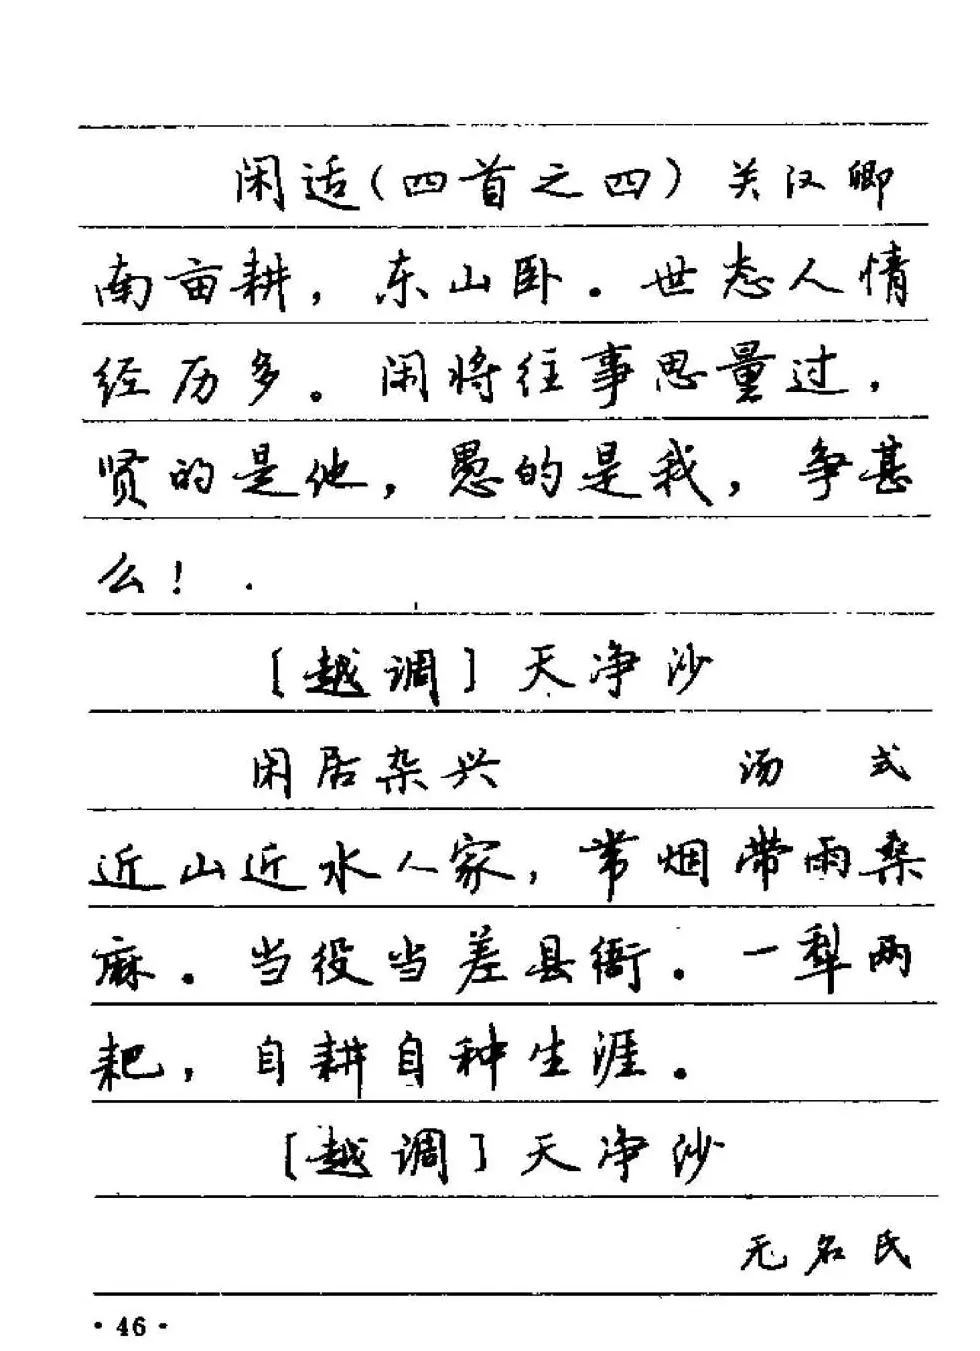 闲适(四首之四) 关汉卿
南亩耕,东山卧.世态人情
经历多。闲将往事思量过,
贤的是他,愚的是我,争甚
么!
[越调]天净沙
闲居杂兴 汤式
近山近水人家,带烟带雨桑
麻.当役当差县衙.一犁两
耙,自耕自种生涯.
[越调]天净沙
无名氏
·46·